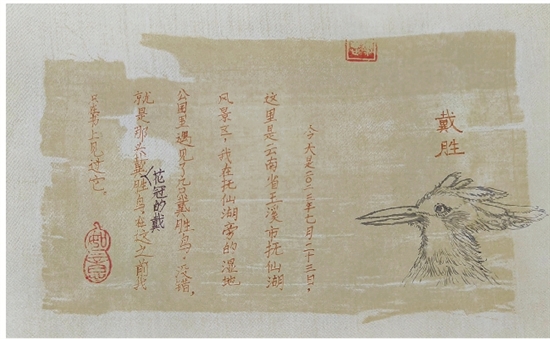 戴胜
今天是二〇二三年七月二十三日，
这里是云南省玉溪市抚仙湖
风景区，我在抚仙湖旁的湿地
公园里遇见了只戴胜鸟，没错，
就是那头戴胜鸟在这之前我
花冠的戴
只在书上见过它。